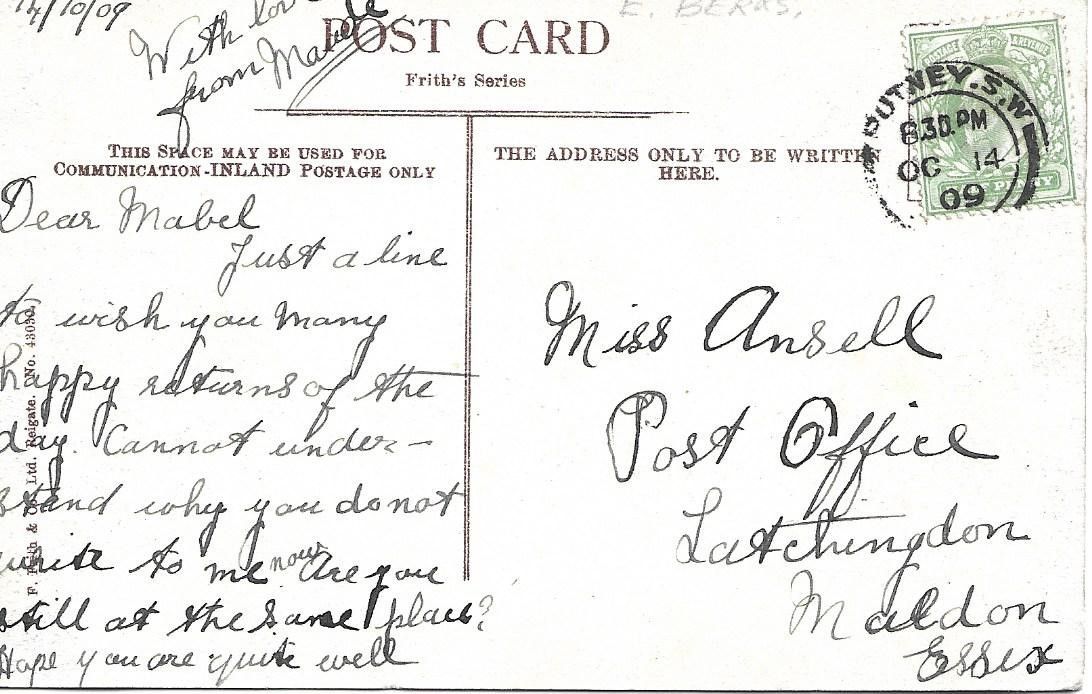 14/10/09
With love
from Mabel
E. BERKS.
POST CARD
Frith's Series
THIS SPACE MAY BE USED FOR
COMMUNICATION-INLAND POSTAGE ONLY
THE ADDRESS ONLY TO BE WRITTEN
HERE.
POSTAGE & REVENUE
PENNY
PUTNEY.S.W
8.30.PM
OC 14
09
Dear Mabel
Just a line
to wish you many
happy returns of the
day. Cannot under-
stand why you do not
write to me now Are you
still at the same place?
Hope you are quite well
Miss Ansell
Post Office
Latchingdon
Maldon
Essex
F. Frith & Co. Ltd. Reigate. No. 43030.